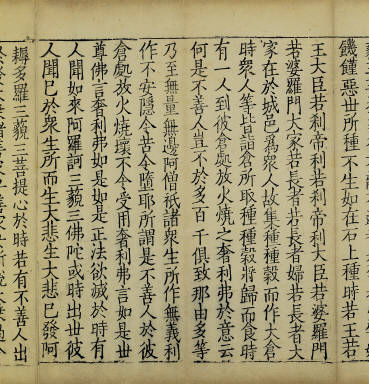 饑饉惡世所種不生如在石上種時若王若
王大臣若刹帝利若刹帝利大臣若婆羅門
若婆羅門大家若長者若長者婦若長者大
家在於城邑為衆人故集種種穀而作大倉
時衆人等皆詣倉所取種種穀將歸而食時
有一人到彼倉處放火燒之奢利弗於意云
何是不善人豈不於多百千俱致那由多等
乃至無量無邊阿僧祇諸衆生所作無義利
作不安隱令苦令墮耶所謂是不善人於彼
倉處放火燒壞不令受用奢利弗言如是世
尊佛言奢利弗如是如是正法欲滅於時有
人聞如來阿羅訶三藐三佛陀或時出世彼
人聞已於衆生所而生大悲生大悲已發阿
耨多羅三藐三菩提心於時若有不善人出